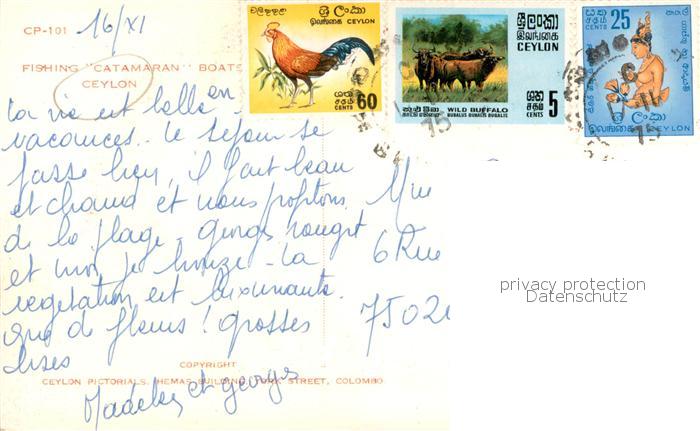 CP-101 16/XI
FISHING "CATAMARAN" BOATS
CEYLON
La vie est belle en
vacances. Le sejour se
passe bien, il fait beau
et chaud et nous profitons
de la plage. Georges rougit
et moi je bronze. La
vegetation est luxuriante.
que de fleurs! Grosses
bises
Madeleine et Georges
Mme
6 Rue
7502
COPYRIGHT
CEYLON PICTORIALS, HEMAS BUILDING, YORK STREET, COLOMBO
ශ්‍රී ලංකා
இலங்கை CEYLON
වලිකුකුළා
ශත
சதம்
CENTS 60
ශ්‍රී ලංකා
இலங்கை
CEYLON
WILD BUFFALO
BUBALUS BUBALIS BUBALIS
ශත
சதம்
CENTS 5
ශත
சதம்
CENTS 25
ශ්‍රී ලංකා
இலங்கை CEYLON
75
75
privacy protection
Datenschutz